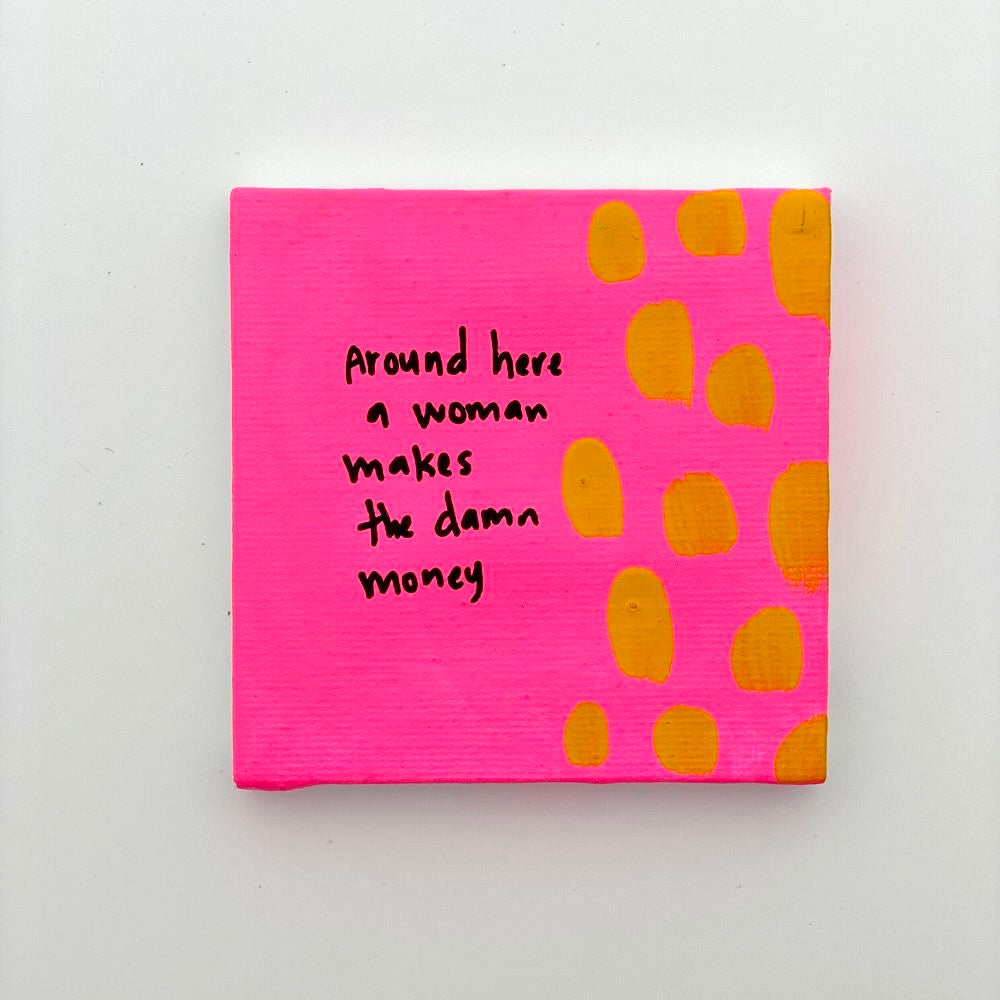 Around here
a woman
makes
the damn
money